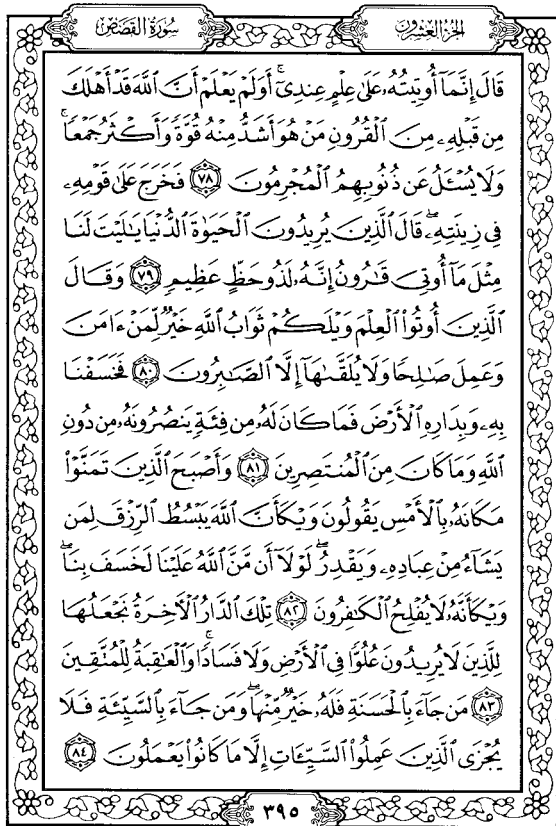 سُورَةُ القَصَصِ
الجُزءُ العِشْرُونَ
قَالَ إِنَّمَآ أُوتِيتُهُۥ عَلَىٰ عِلْمٍ عِندِىٓۚ أَوَلَمْ يَعْلَمْ أَنَّ ٱللَّهَ قَدْ أَهْلَكَ
مِن قَبْلِهِۦ مِنَ ٱلْقُرُونِ مَنْ هُوَ أَشَدُّ مِنْهُ قُوَّةً وَأَكْثَرُ جَمْعًاۚ
وَلَا يُسْـَٔلُ عَن ذُنُوبِهِمُ ٱلْمُجْرِمُونَ ٧٨ فَخَرَجَ عَلَىٰ قَوْمِهِۦ
فِى زِينَتِهِۦۖ قَالَ ٱلَّذِينَ يُرِيدُونَ ٱلْحَيَوٰةَ ٱلدُّنْيَا يَـٰلَيْتَ لَنَا
مِثْلَ مَآ أُوتِىَ قَـٰرُونُ إِنَّهُۥ لَذُو حَظٍّ عَظِيمٍ ٧٩ وَقَالَ
ٱلَّذِينَ أُوتُوا۟ ٱلْعِلْمَ وَيْلَكُمْ ثَوَابُ ٱللَّهِ خَيْرٌ لِّمَنْ ءَامَنَ
وَعَمِلَ صَـٰلِحًا وَلَا يُلَقَّىٰهَآ إِلَّا ٱلصَّـٰبِرُونَ ٨٠ فَخَسَفْنَا
بِهِۦ وَبِدَارِهِ ٱلْأَرْضَ فَمَا كَانَ لَهُۥ مِن فِئَةٍ يَنصُرُونَهُۥ مِن دُونِ
ٱللَّهِ وَمَا كَانَ مِنَ ٱلْمُنتَصِرِينَ ٨١ وَأَصْبَحَ ٱلَّذِينَ تَمَنَّوْا۟
مَكَانَهُۥ بِٱلْأَمْسِ يَقُولُونَ وَيْكَأَنَّ ٱللَّهَ يَبْسُطُ ٱلرِّزْقَ لِمَن
يَشَآءُ مِنْ عِبَادِهِۦ وَيَقْدِرُۖ لَوْلَآ أَن مَّنَّ ٱللَّهُ عَلَيْنَا لَخَسَفَ بِنَاۖ
وَيْكَأَنَّهُۥ لَا يُفْلِحُ ٱلْكَـٰفِرُونَ ٨٢ تِلْكَ ٱلدَّارُ ٱلْـَٔاخِرَةُ نَجْعَلُهَا
لِلَّذِينَ لَا يُرِيدُونَ عُلُوًّا فِى ٱلْأَرْضِ وَلَا فَسَادًاۚ وَٱلْعَـٰقِبَةُ لِلْمُتَّقِينَ
٨٣ مَن جَآءَ بِٱلْحَسَنَةِ فَلَهُۥ خَيْرٌ مِّنْهَاۖ وَمَن جَآءَ بِٱلسَّيِّئَةِ فَلَا
يُجْزَى ٱلَّذِينَ عَمِلُوا۟ ٱلسَّيِّـَٔاتِ إِلَّا مَا كَانُوا۟ يَعْمَلُونَ ٨٤
٣٩٥